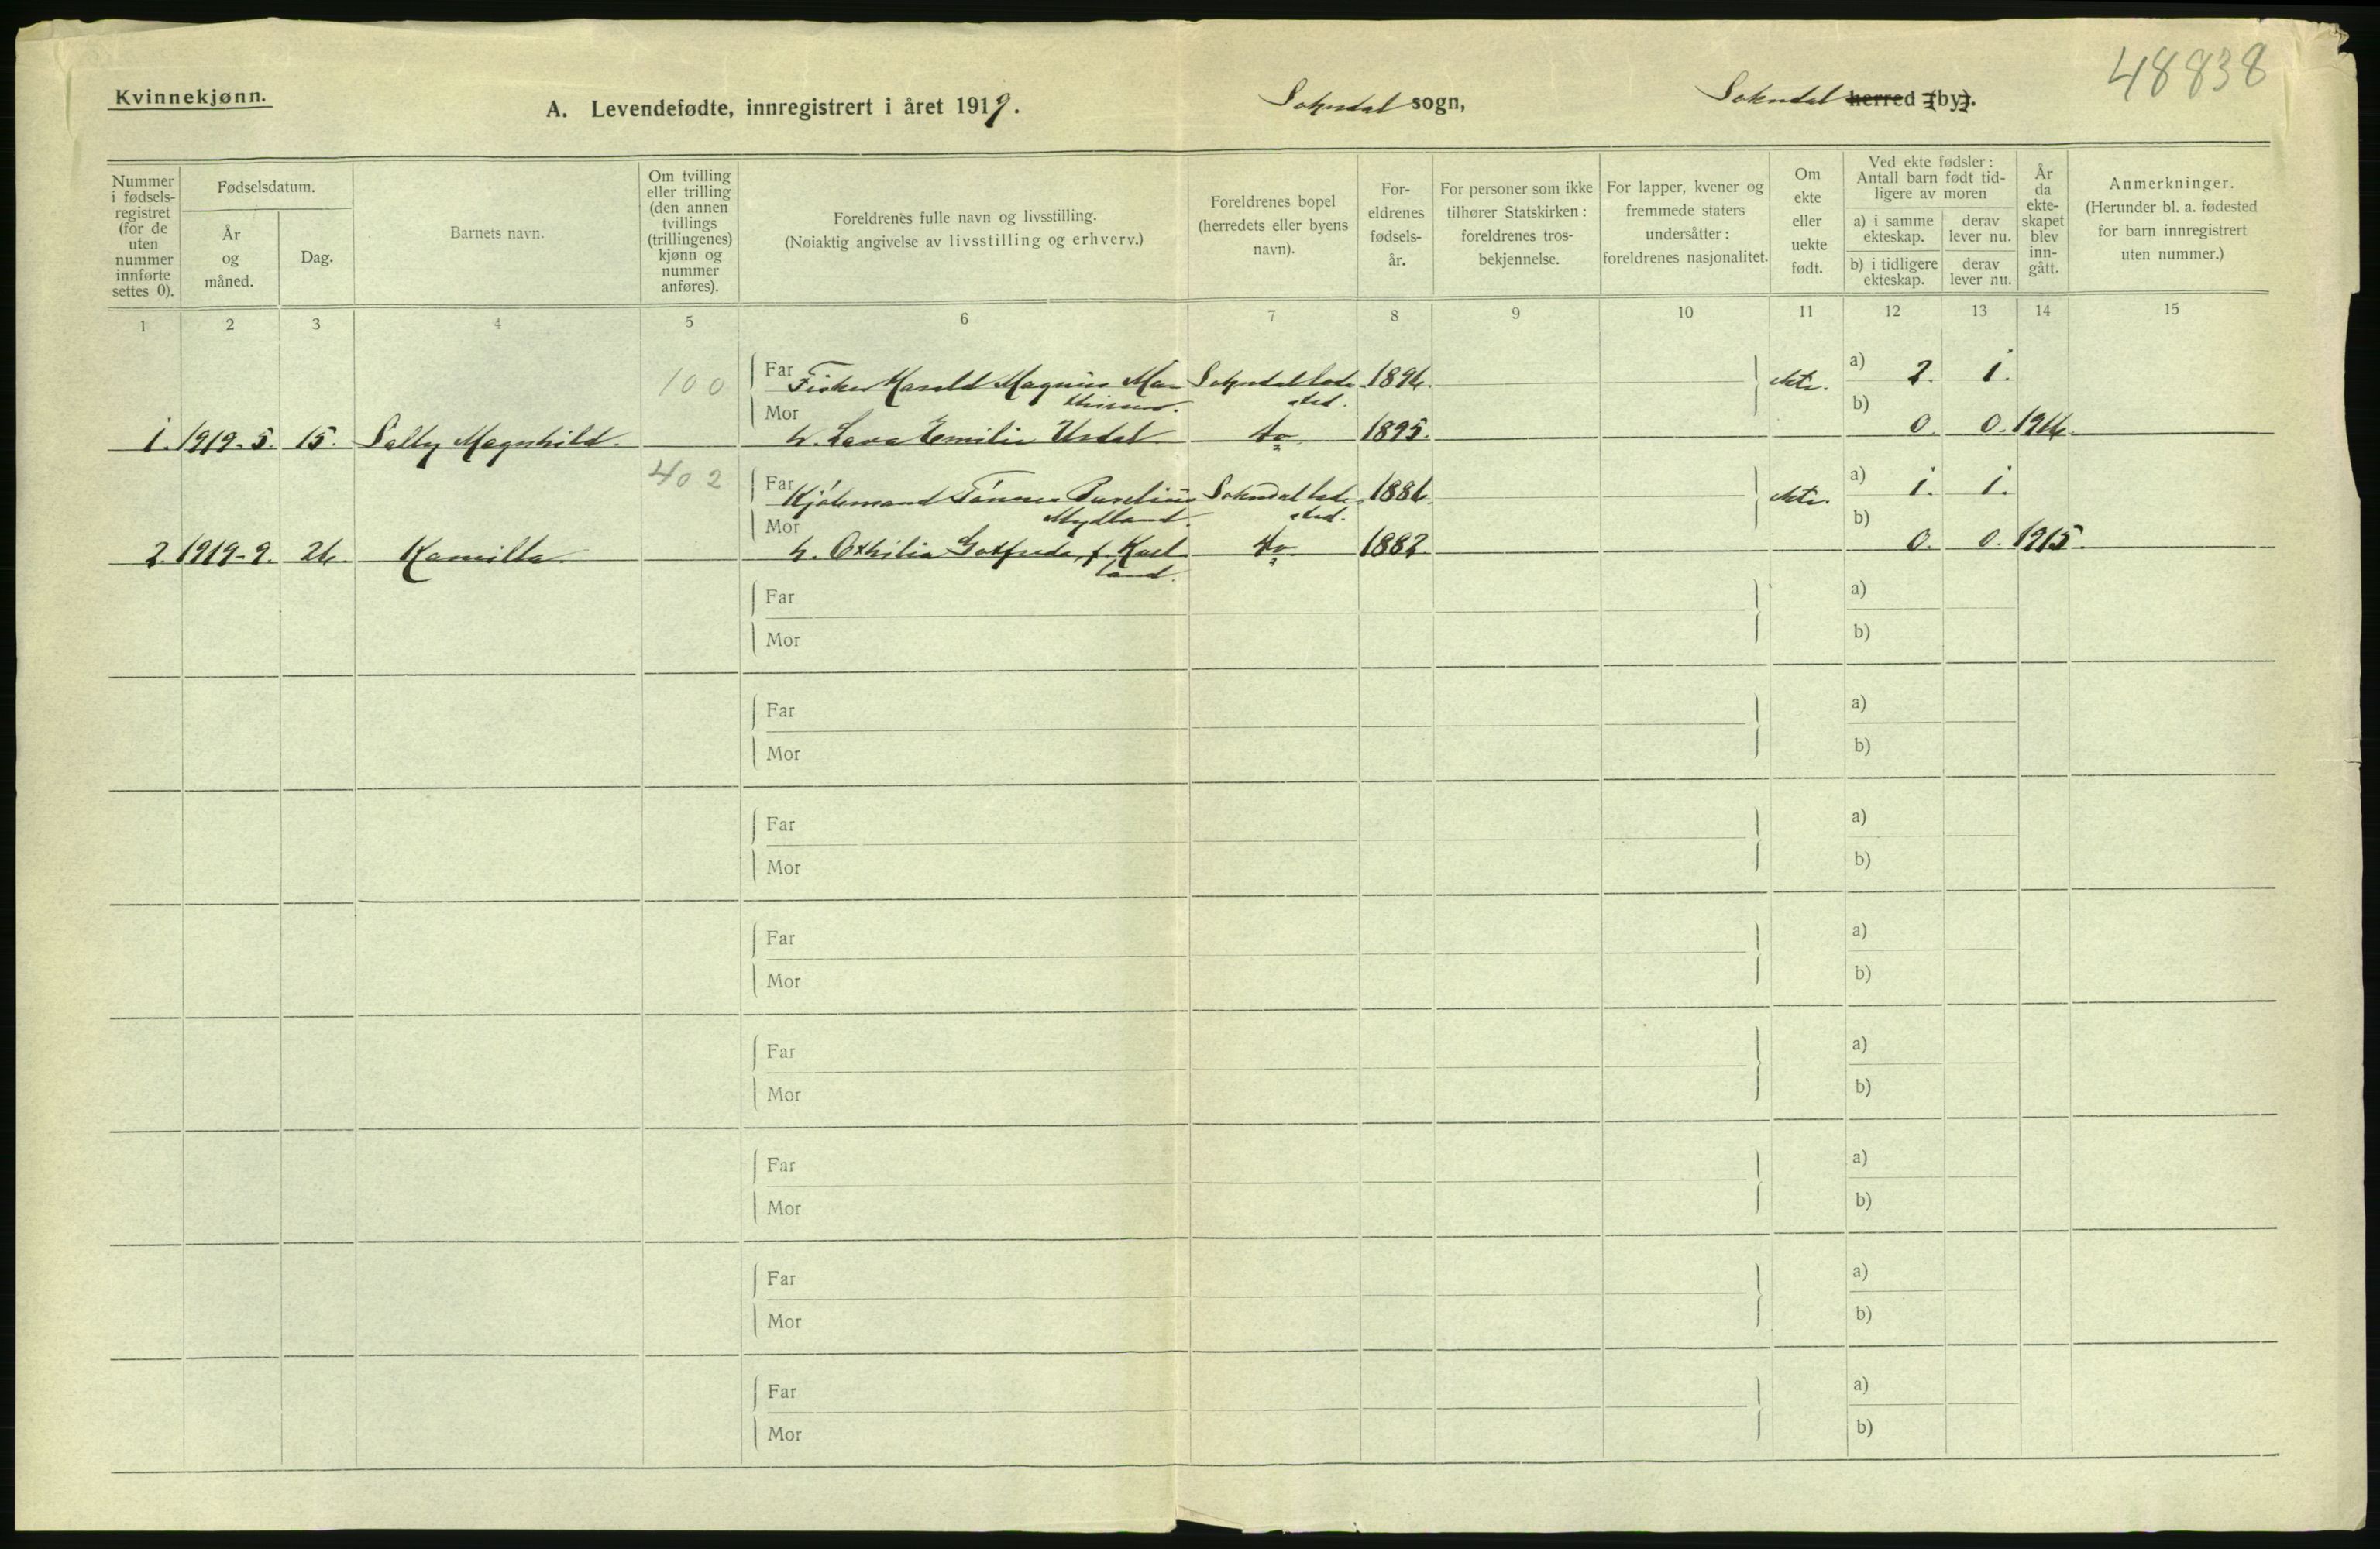 48838
Kvinnekjønn.
A. Levendefødte, innregistrert i året 1919. Sokndal sogn, Sokndal herred (by).
Nummer i fødsels- registret (for de uten nummer innførte settes 0).
Fødselsdatum.
År og måned.
Dag.
Barnets navn.
Om tvilling eller trilling (den annen tvillings (trillingenes) kjønn og nummer anføres).
Foreldrenes fulle navn og livsstilling.
(Nøiaktig angivelse av livsstilling og erhverv.)
Foreldrenes bopel (herredets eller byens navn).
For- eldrenes fødsels- år.
For personer som ikke tilhører Statskirken: foreldrenes tros- bekjennelse.
For lapper, kvener og fremmede staters undersåtter: foreldrenes nasjonalitet.
Om ekte eller uekte født.
Ved ekte fødsler: Antall barn født tid- ligere av moren
a) i samme ekteskap.
derav lever nu.
b) i tidligere ekteskap.
derav lever nu.
År da ekte- skapet blev inn- gått.
Anmerkninger.
(Herunder bl. a. fødested for barn innregistrert uten nummer.)
1 2 3 4 5 6 7 8 9 10 11 12 13 14 15
100 Far Fisker Harald Magnus Ma- Sokndal lade- 1894. ekte. a) 2. 1.
thisen. sted.
Mor b)
1. 1919-5. 15. Solby Magnhild. h. Lava Emilie Urdal do 1895. 0. 0. 1914.
402 Far Kjølemand Tønnes Puselius Sokndal lade- 1884. ekte. a) 1. 1.
Mydland. sted.
Mor b)
2. 1919-9. 24. Kamilla. h. Othilia Gotfreda, f. Kvel- do 1882. 0. 0. 1915.
land.
Far a)
Mor b)
Far a)
Mor b)
Far a)
Mor b)
Far a)
Mor b)
Far a)
Mor b)
Far a)
Mor b)
Far a)
Mor b)
Far a)
Mor b)